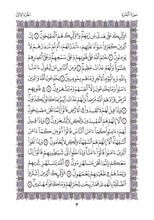 سورة البقرة
الجزء الأول
أولئك على هدى من ربهم وأولئك هم المفلحون إن
الذين كفروا سواء عليهم ءأنذرتهم أم لم تنذرهم لا
يؤمنون ختم الله على قلوبهم وعلى سمعهم وعلى أبصارهم
غشاوة ولهم عذاب عظيم ومن الناس من يقول ءامنا
بالله وباليوم الآخر وما هم بمؤمنين يخادعون الله والذين
ءامنوا وما يخدعون إلا أنفسهم وما يشعرون في قلوبهم
مرض فزادهم الله مرضا ولهم عذاب أليم بما كانوا يكذبون
وإذا قيل لهم لا تفسدوا في الأرض قالوا إنما نحن مصلحون
ألا إنهم هم المفسدون ولكن لا يشعرون وإذا قيل
لهم ءامنوا كما ءامن الناس قالوا أنؤمن كما ءامن
السفهاء ألا إنهم هم السفهاء ولكن لا يعلمون وإذا
لقوا الذين ءامنوا قالوا ءامنا وإذا خلوا إلى شياطينهم قالوا إنا
معكم إنما نحن مستهزءون الله يستهزئ بهم
ويمدهم في طغيانهم يعمهون أولئك الذين اشتروا
الضلالة بالهدى فما ربحت تجارتهم وما كانوا مهتدين
٣